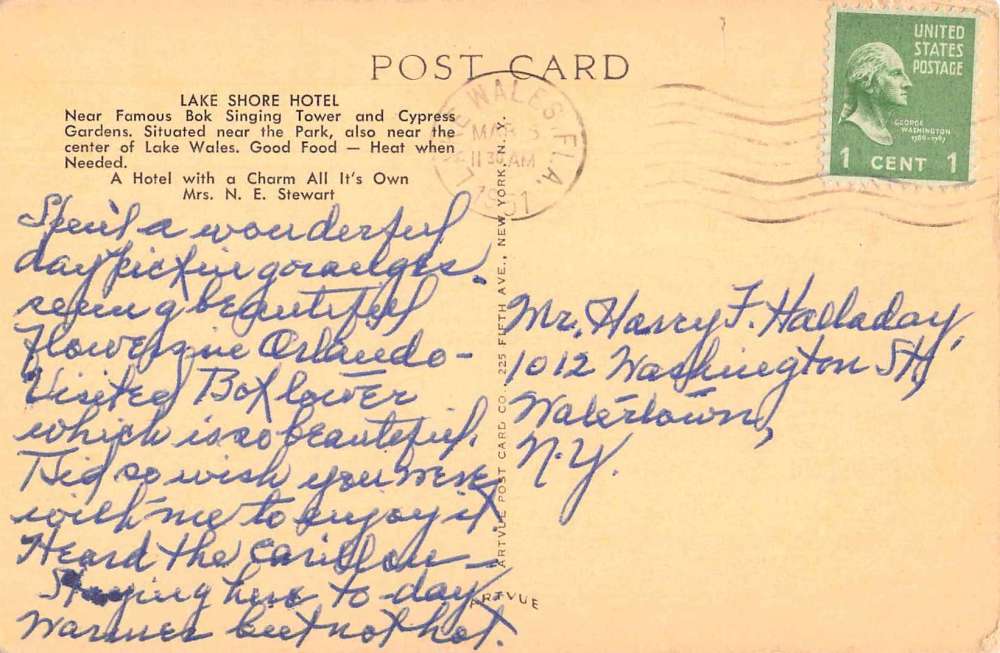 POST CARD
LAKE SHORE HOTEL
Near Famous Bok Singing Tower and Cypress
Gardens. Situated near the Park, also near the
center of Lake Wales. Good Food — Heat when
Needed.
A Hotel with a Charm All It's Own
Mrs. N. E. Stewart
Spent a wonderful
day pickin goranges.
seeing beautiful
flowers in Orlando -
Visited Bok tower
which is so beautiful.
Did so wish you were
with me to enjoy it.
Heard the carillon -
Staying here to-day
Warmer but not hot.
LAKE WALES, FLA.
MAR 3
11 30 AM
1951
UNITED
STATES
POSTAGE
GEORGE
WASHINGTON
1789-1797
1 CENT 1
Mr. Harry F. Halladay,
1012 Washington St,
Watertown,
N.Y.
ARTVUE POST CARD CO., 225 FIFTH AVE., NEW YORK, N.Y.
ARTVUE